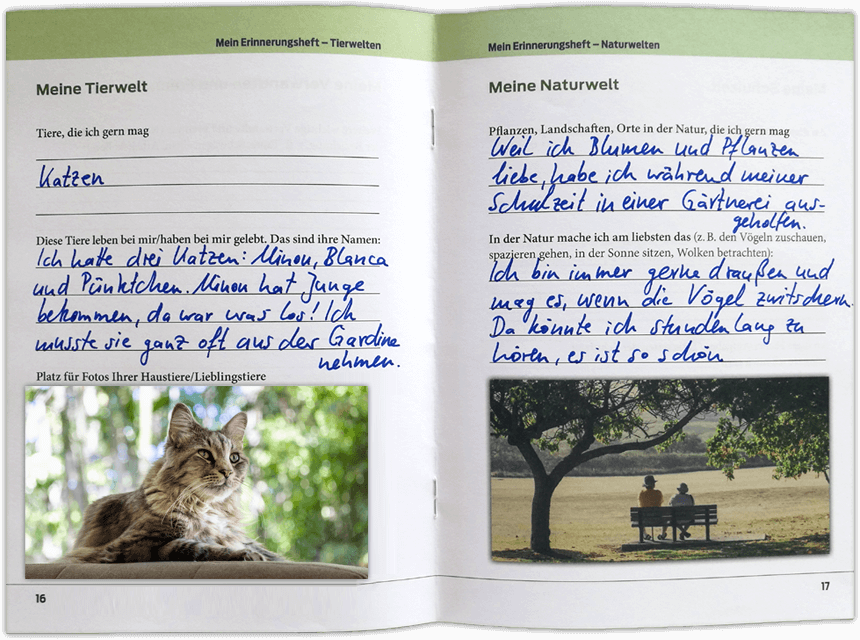 Mein Erinnerungsheft – Tierwelten
Meine Tierwelt
Tiere, die ich gern mag
Katzen
Diese Tiere leben bei mir/haben bei mir gelebt. Das sind ihre Namen:
Ich hatte drei Katzen: Minou, Blanca
und Pünktchen. Minou hat Junge
bekommen, da war was los! Ich
musste sie ganz oft aus der Gardine
nehmen.
Platz für Fotos Ihrer Haustiere/Lieblingstiere
16
Mein Erinnerungsheft – Naturwelten
Meine Naturwelt
Pflanzen, Landschaften, Orte in der Natur, die ich gern mag
Weil ich Blumen und Pflanzen
liebe, habe ich während meiner
Schulzeit in einer Gärtnerei aus-
geholfen.
In der Natur mache ich am liebsten das (z. B. den Vögeln zuschauen,
spazieren gehen, in der Sonne sitzen, Wolken betrachten):
Ich bin immer gerne draußen und
mag es, wenn die Vögel zwitschern.
Da könnte ich stundenlang zu
hören, es ist so schön
17